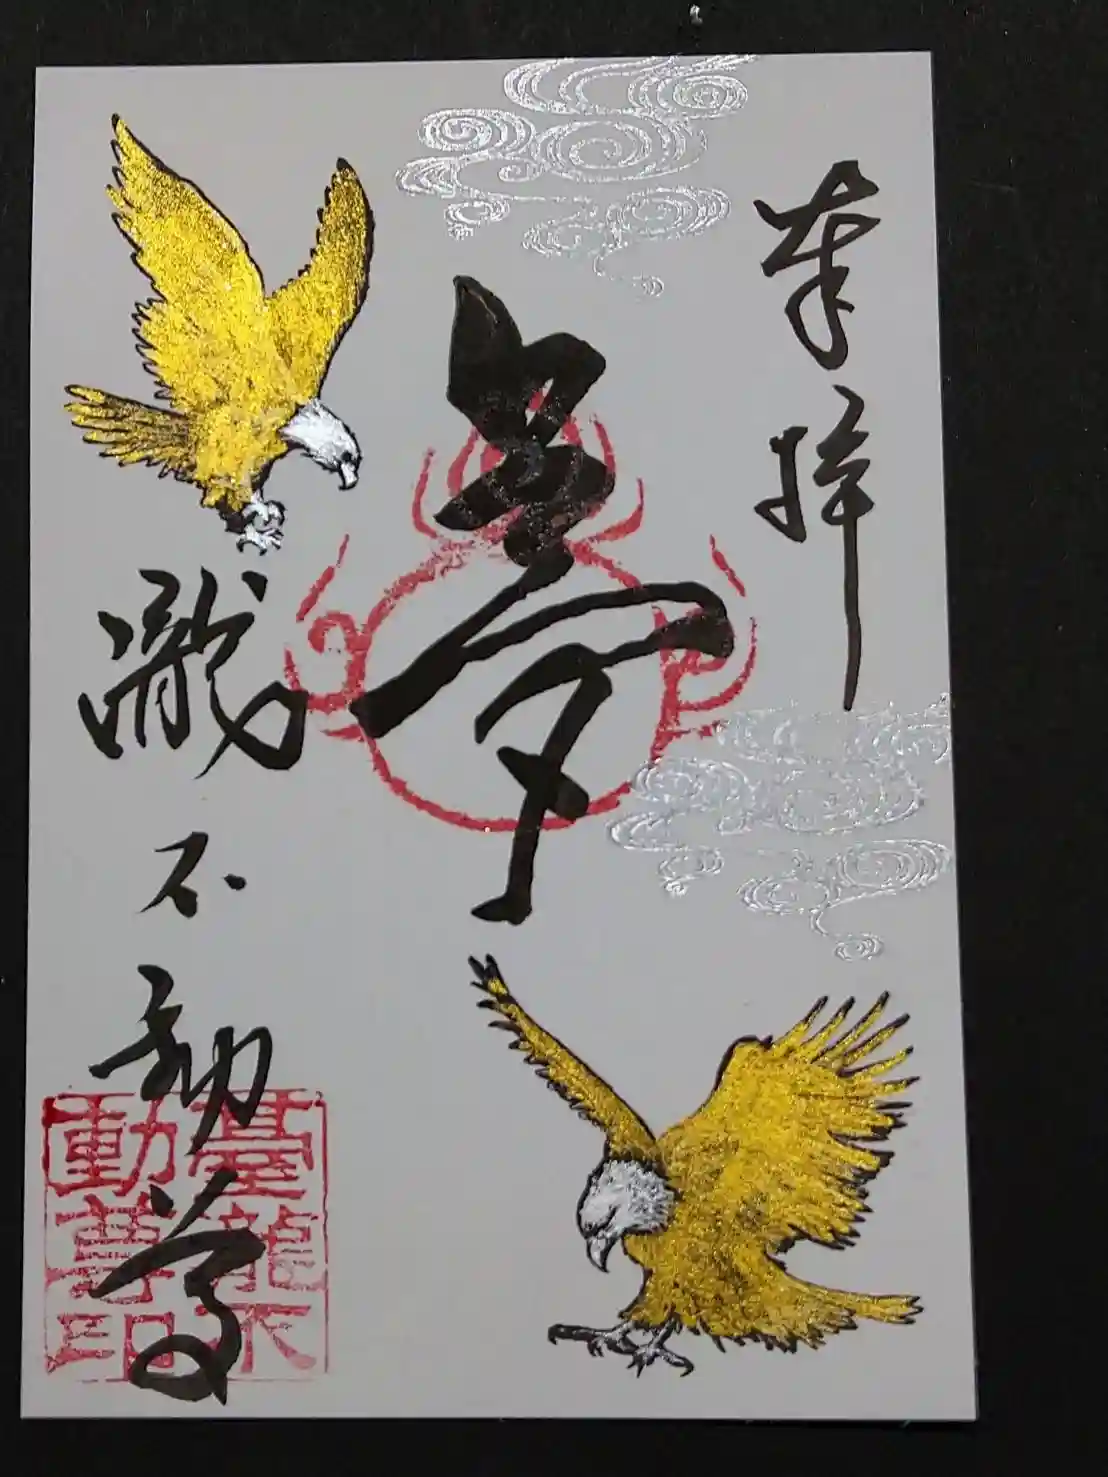 奉拝
夢
瀧不動尊
臺瀧不
動尊印